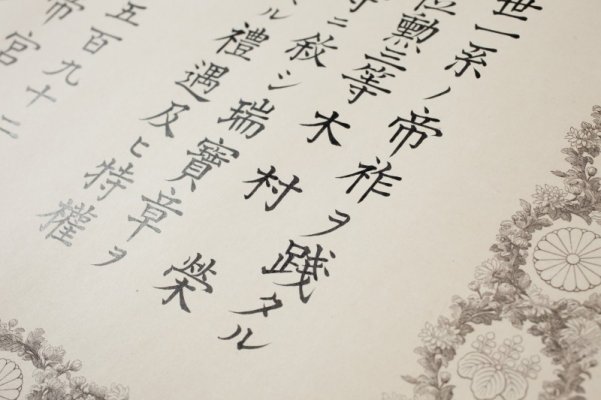 世一系ノ帝祚ヲ踐タル
位勲三等木村榮
ニ敘シ瑞寶章ヲ
ル禮遇及ヒ特權
五百九十二
帝宮